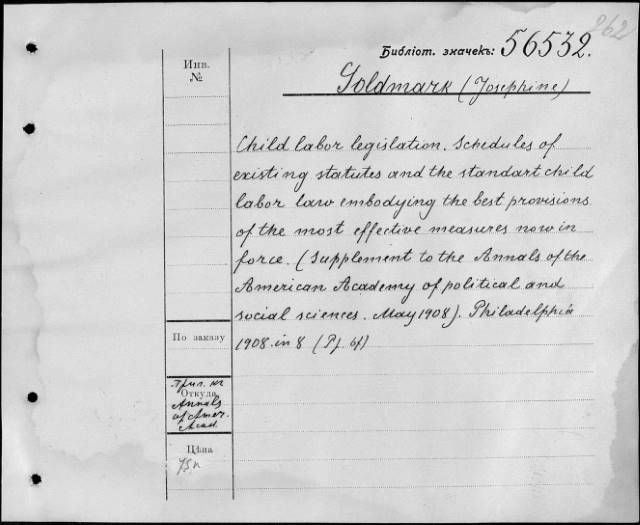 262
Библіот. значекъ: 56532.
Инв.
№
Goldmark (Josephine)
Child labor legislation. Schedules of
existing statutes and the standart child
labor law embodying the best provisions
of the most effective measures now in
force. (Supplement to the Annals of the
American Academy of political and
social sciences. May 1908). Philadelphia
По заказу
1908. in 8
Прил. къ
Откуда
Annals
of Amer.
Acad.
Цѣна